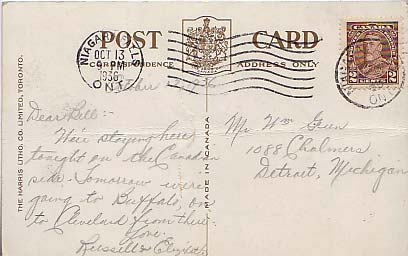 POST CARD
CORRESPONDENCE
ADDRESS ONLY
NIAGARA FALLS
OCT 13
PM
1936
ONT.
CANADA
2 2
Dear Bill:-
We're staying here
tonight on the Canadian
side. Tomorrow we're
going to Buffalo, on
to Cleveland from there.
Love.
Russell &
Mr. Wm
1088 Chalmers
Detroit, Michigan
THE HARRIS LITHO. CO. LIMITED, TORONTO.
MADE IN CANADA